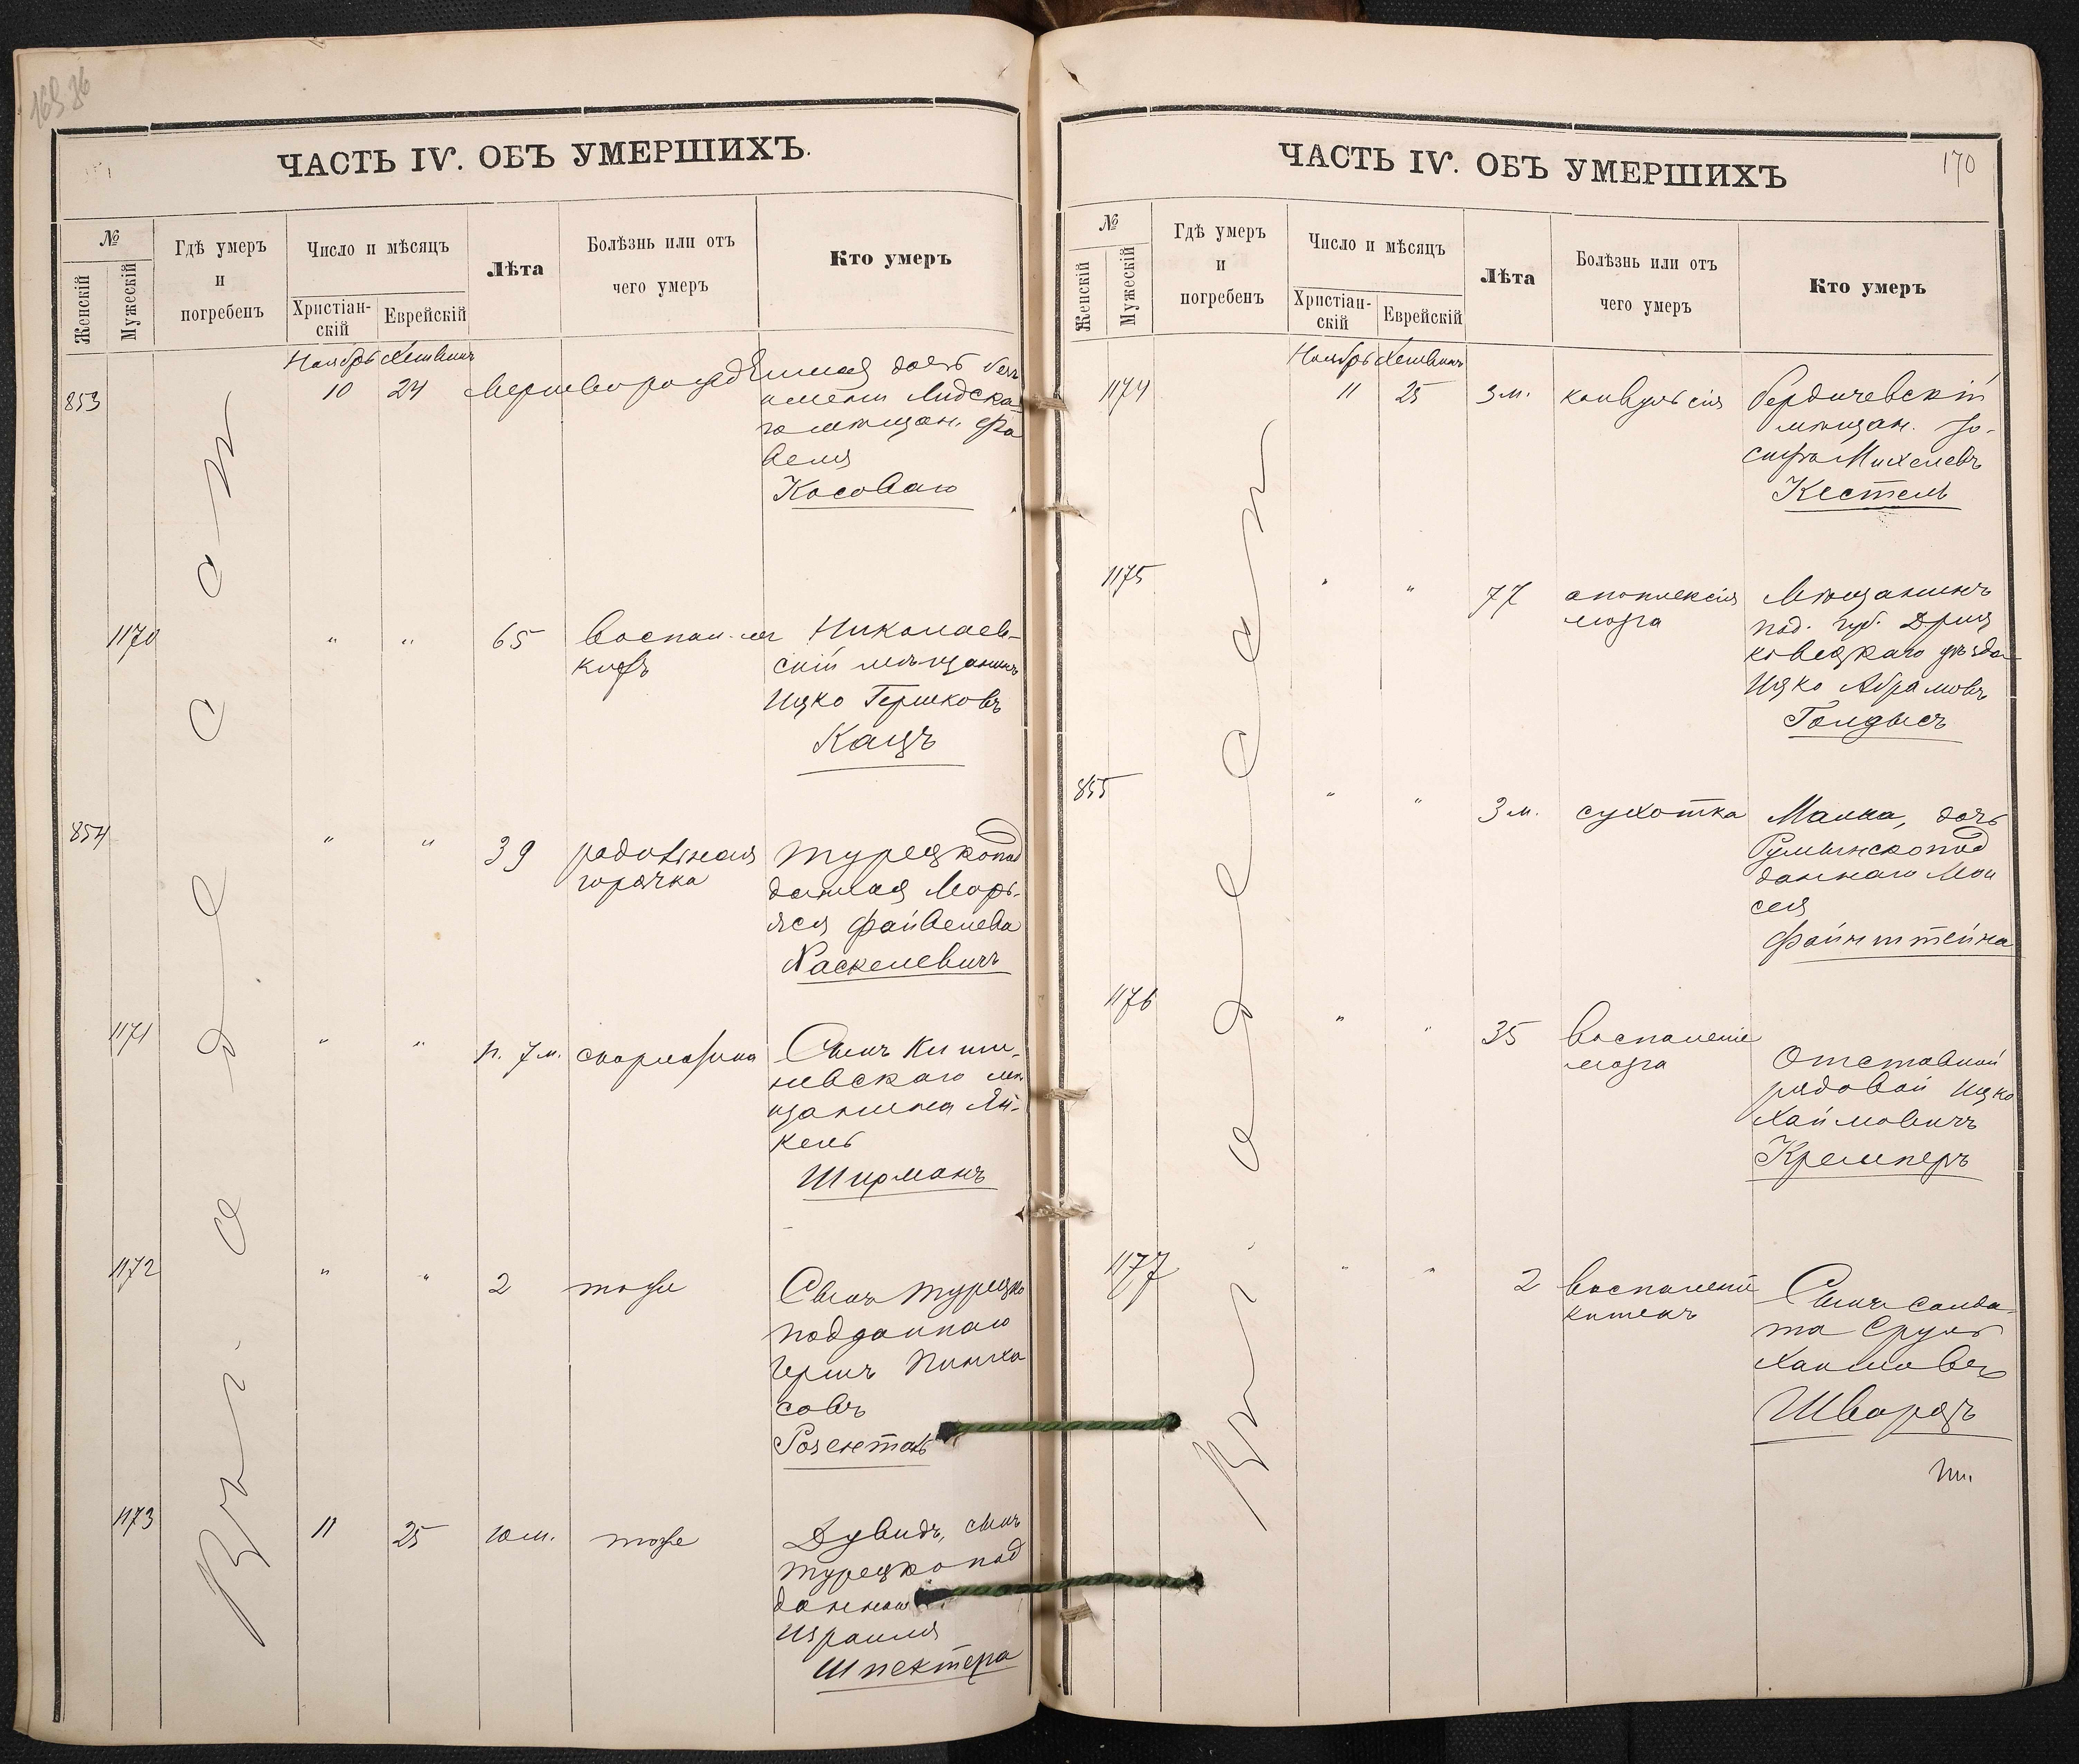 169 36
ЧАСТЬ IV. ОБЪ УМЕРШИХЪ.
№
Женскій
Мужескій
Гдѣ умеръ
и
погребенъ
Число и мѣсяцъ
Христіан-
скій
Еврейскій
Лѣта
Болѣзнь или отъ
чего умеръ
Кто умеръ
Въ г. Одессѣ
Ноябрь Хешвинъ
853 10 24 Мертворожденная дочь безъ
имени Лидска-
го мѣщан. Фа
веля
Косоваго
1170 " " 65 воспал. лег Николаев-
кихъ скій мѣщанинъ
Ицко Гершковъ
Кацъ
854 " " 39 родильная Турецкопод
горячка данная Марь-
яся Файвелева
Хаскелевичъ
1171 " " 1 г. 7 м. скарлатина Сынъ Киши-
невскаго мѣ
щанина Ян-
кель
Ширманъ
1172 " " 2 тоже Сынъ Турецко
подданнаго
Гершъ Пинха
совъ
Розенталь
1173 11 25 10 м. тоже Дувидъ, сынъ
турецкопод
даннаго
Израиля
Шпектера
170
ЧАСТЬ IV. ОБЪ УМЕРШИХЪ
№
Женскій
Мужескій
Гдѣ умеръ
и
погребенъ
Число и мѣсяцъ
Христіан-
скій
Еврейскій
Лѣта
Болѣзнь или отъ
чего умеръ
Кто умеръ
Въ г. Одессѣ
Ноябрь Хешвинъ
1174 11 25 3 м. конвульсія Бердичевскій
мѣщан. Іо-
сифъ Михелевъ
Кестель
1175 " " 77 апоплексія Мѣщанинъ
мозга Под. губ.
уѣзда
Ицко Абрамовъ
Голдысъ
855 " " 3 м. сухотка Малка, дочь
Румынскопод
даннаго Мои
сея
Файнштейна
1176 " " 35 воспаленіе
мозга Отставной
рядовой Ицко
Хаймовичъ
Кремперъ
1177 " " 2 воспаленіе
кишекъ Сынъ солда-
та Сруль
Хаимовъ
Шварцъ